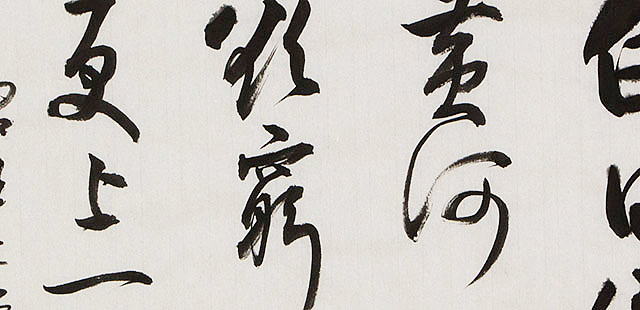 白日依
黄河
欲窮
更上一